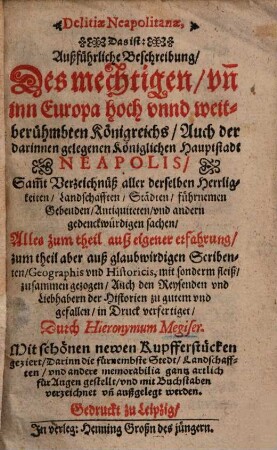 Delitiæ Neapolitanæ,
Das ist:
Außführliche Beschreibung/
Des mechtigen/ vñ
inn Europa hoch vnnd weit-
berühmbten Königreichs/ Auch der
darinnen gelegenen Königlichen Hauptstadt
NEAPOLIS/
Sam̃t Verzeichnüß aller derselben Herrlig-
keiten/ Landschafften/ Städten/ fürnemen
Gebeuden/ Antiquiteten/ vnd andern
gedenckwürdigen sachen/
Alles zum theil auß eigener erfahrung/
zum theil aber auß glaubwirdigen Scriben-
ten/ Geographis vnd Historicis, mit sonderm fleiß/
zusammen gezogen/ Auch den Reysenden vnd
Liebhabern der Historien zu gutem vnd
gefallen/ in Druck verfertiget/
Durch Hieronymum Megiser.
Mit schönen newen Kupfferstücken
geziert/ Darinn die fürnembste Stedt/ Landschaff-
ten/ vnd andere memorabilia gantz artlich
für Augen gestellt/ vnd mit Buchstaben
verzeichnet vñ außgelegt werden.
Gedruckt zu Leipzig/
In verleg: Henning Großn des jüngern.